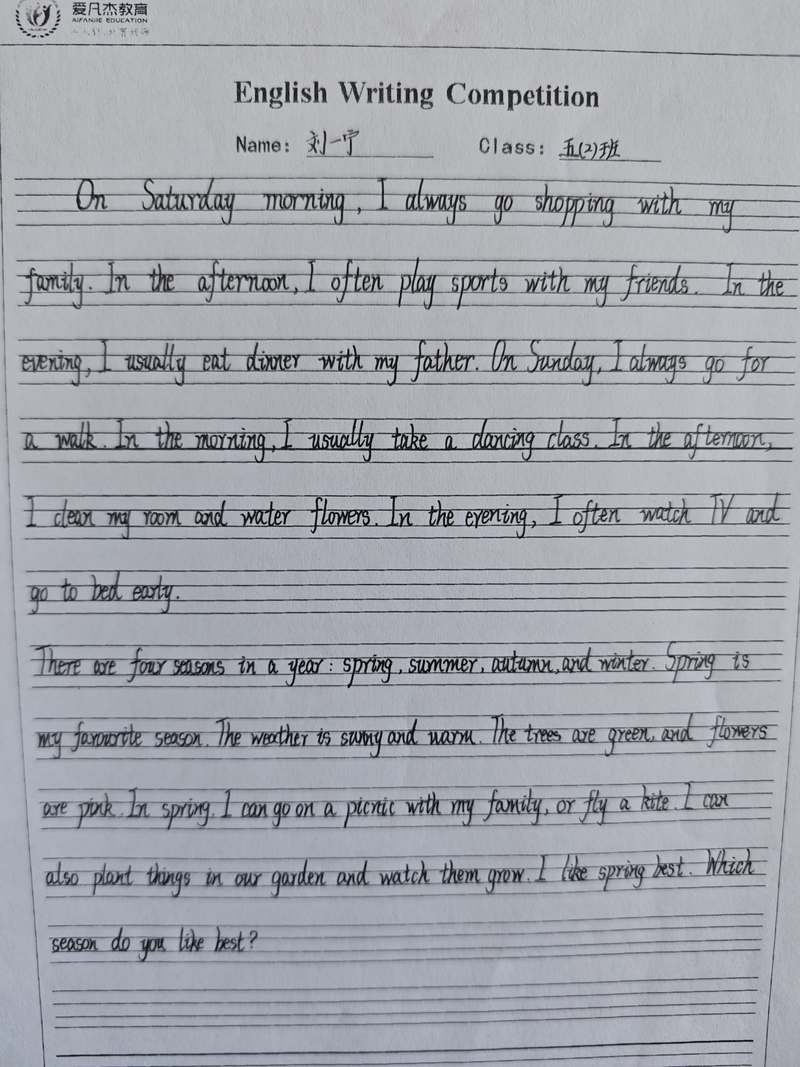 爱凡杰教育
AIFANJIE EDUCATION
English Writing Competition
Name: 刘一宁 Class: 五(2)班
On Saturday morning, I always go shopping with my
family. In the afternoon, I often play sports with my friends. In the
evening, I usually eat dinner with my father. On Sunday, I always go for
a walk. In the morning, I usually take a dancing class. In the afternoon,
I clean my room and water flowers. In the evening, I often watch TV and
go to bed early.
There are four seasons in a year: spring, summer, autumn, and winter. Spring is
my favourite season. The weather is sunny and warm. The trees are green, and flowers
are pink. In spring, I can go on a picnic with my family, or fly a kite. I can
also plant things in our garden and watch them grow. I like spring best. Which
season do you like best?